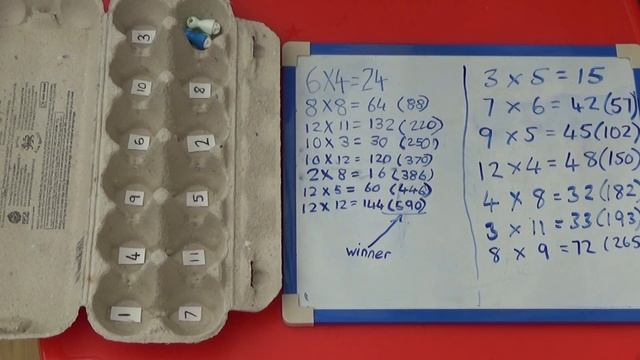 3
10 8
6 2
9 5
4 11
1 7
6 x 4 = 24
8 x 8 = 64 (88)
12 x 11 = 132 (220)
10 x 3 = 30 (250)
10 x 12 = 120 (370)
2 x 8 = 16 (386)
12 x 5 = 60 (446)
12 x 12 = 144 (590)
winner
3 x 5 = 15
7 x 6 = 42 (57)
9 x 5 = 45 (102)
12 x 4 = 48 (150)
4 x 8 = 32 (182
3 x 11 = 33 (193
8 x 9 = 72 (265